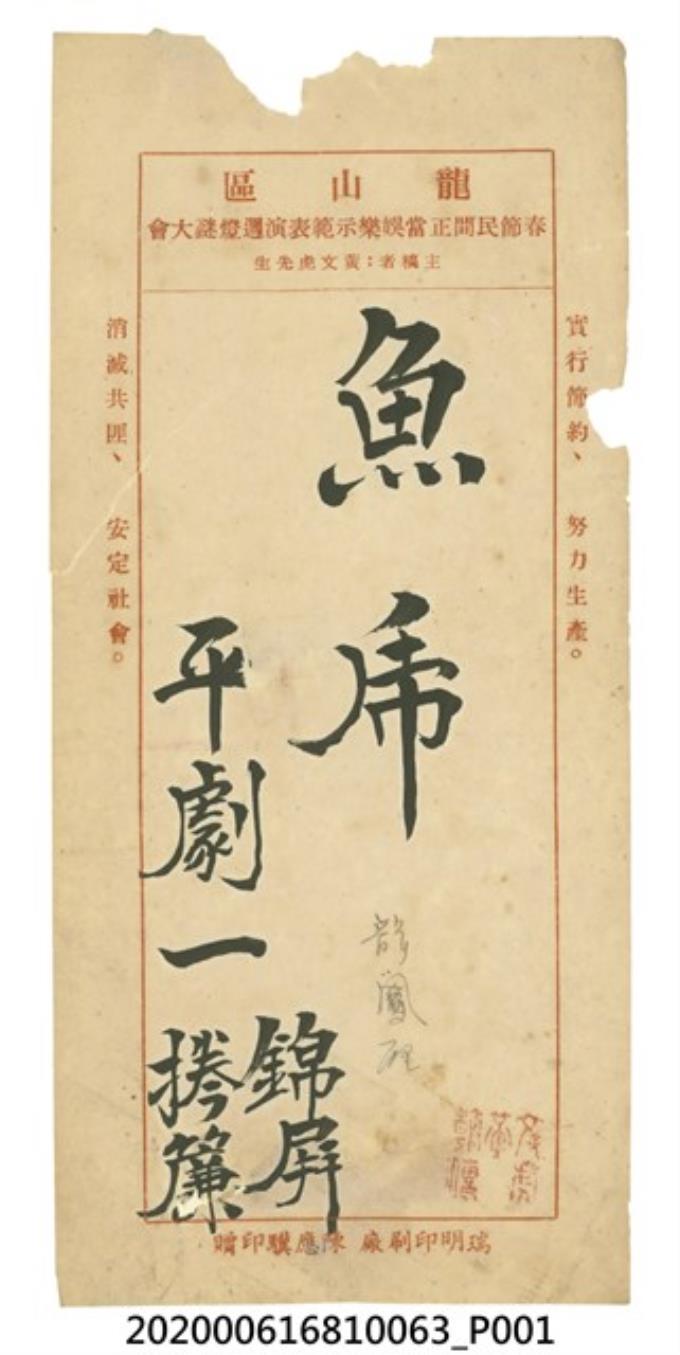 龍山區
春節民間正當娛樂示範表演週燈謎大會
主稿者：黃文虎先生
實行節約、努力生產。
魚乕
龍鳳配
平劇一
錦屏
捲簾
消滅共匪、安定社會。
瑞明印刷廠 陳應驥印贈
202000616810063_P001